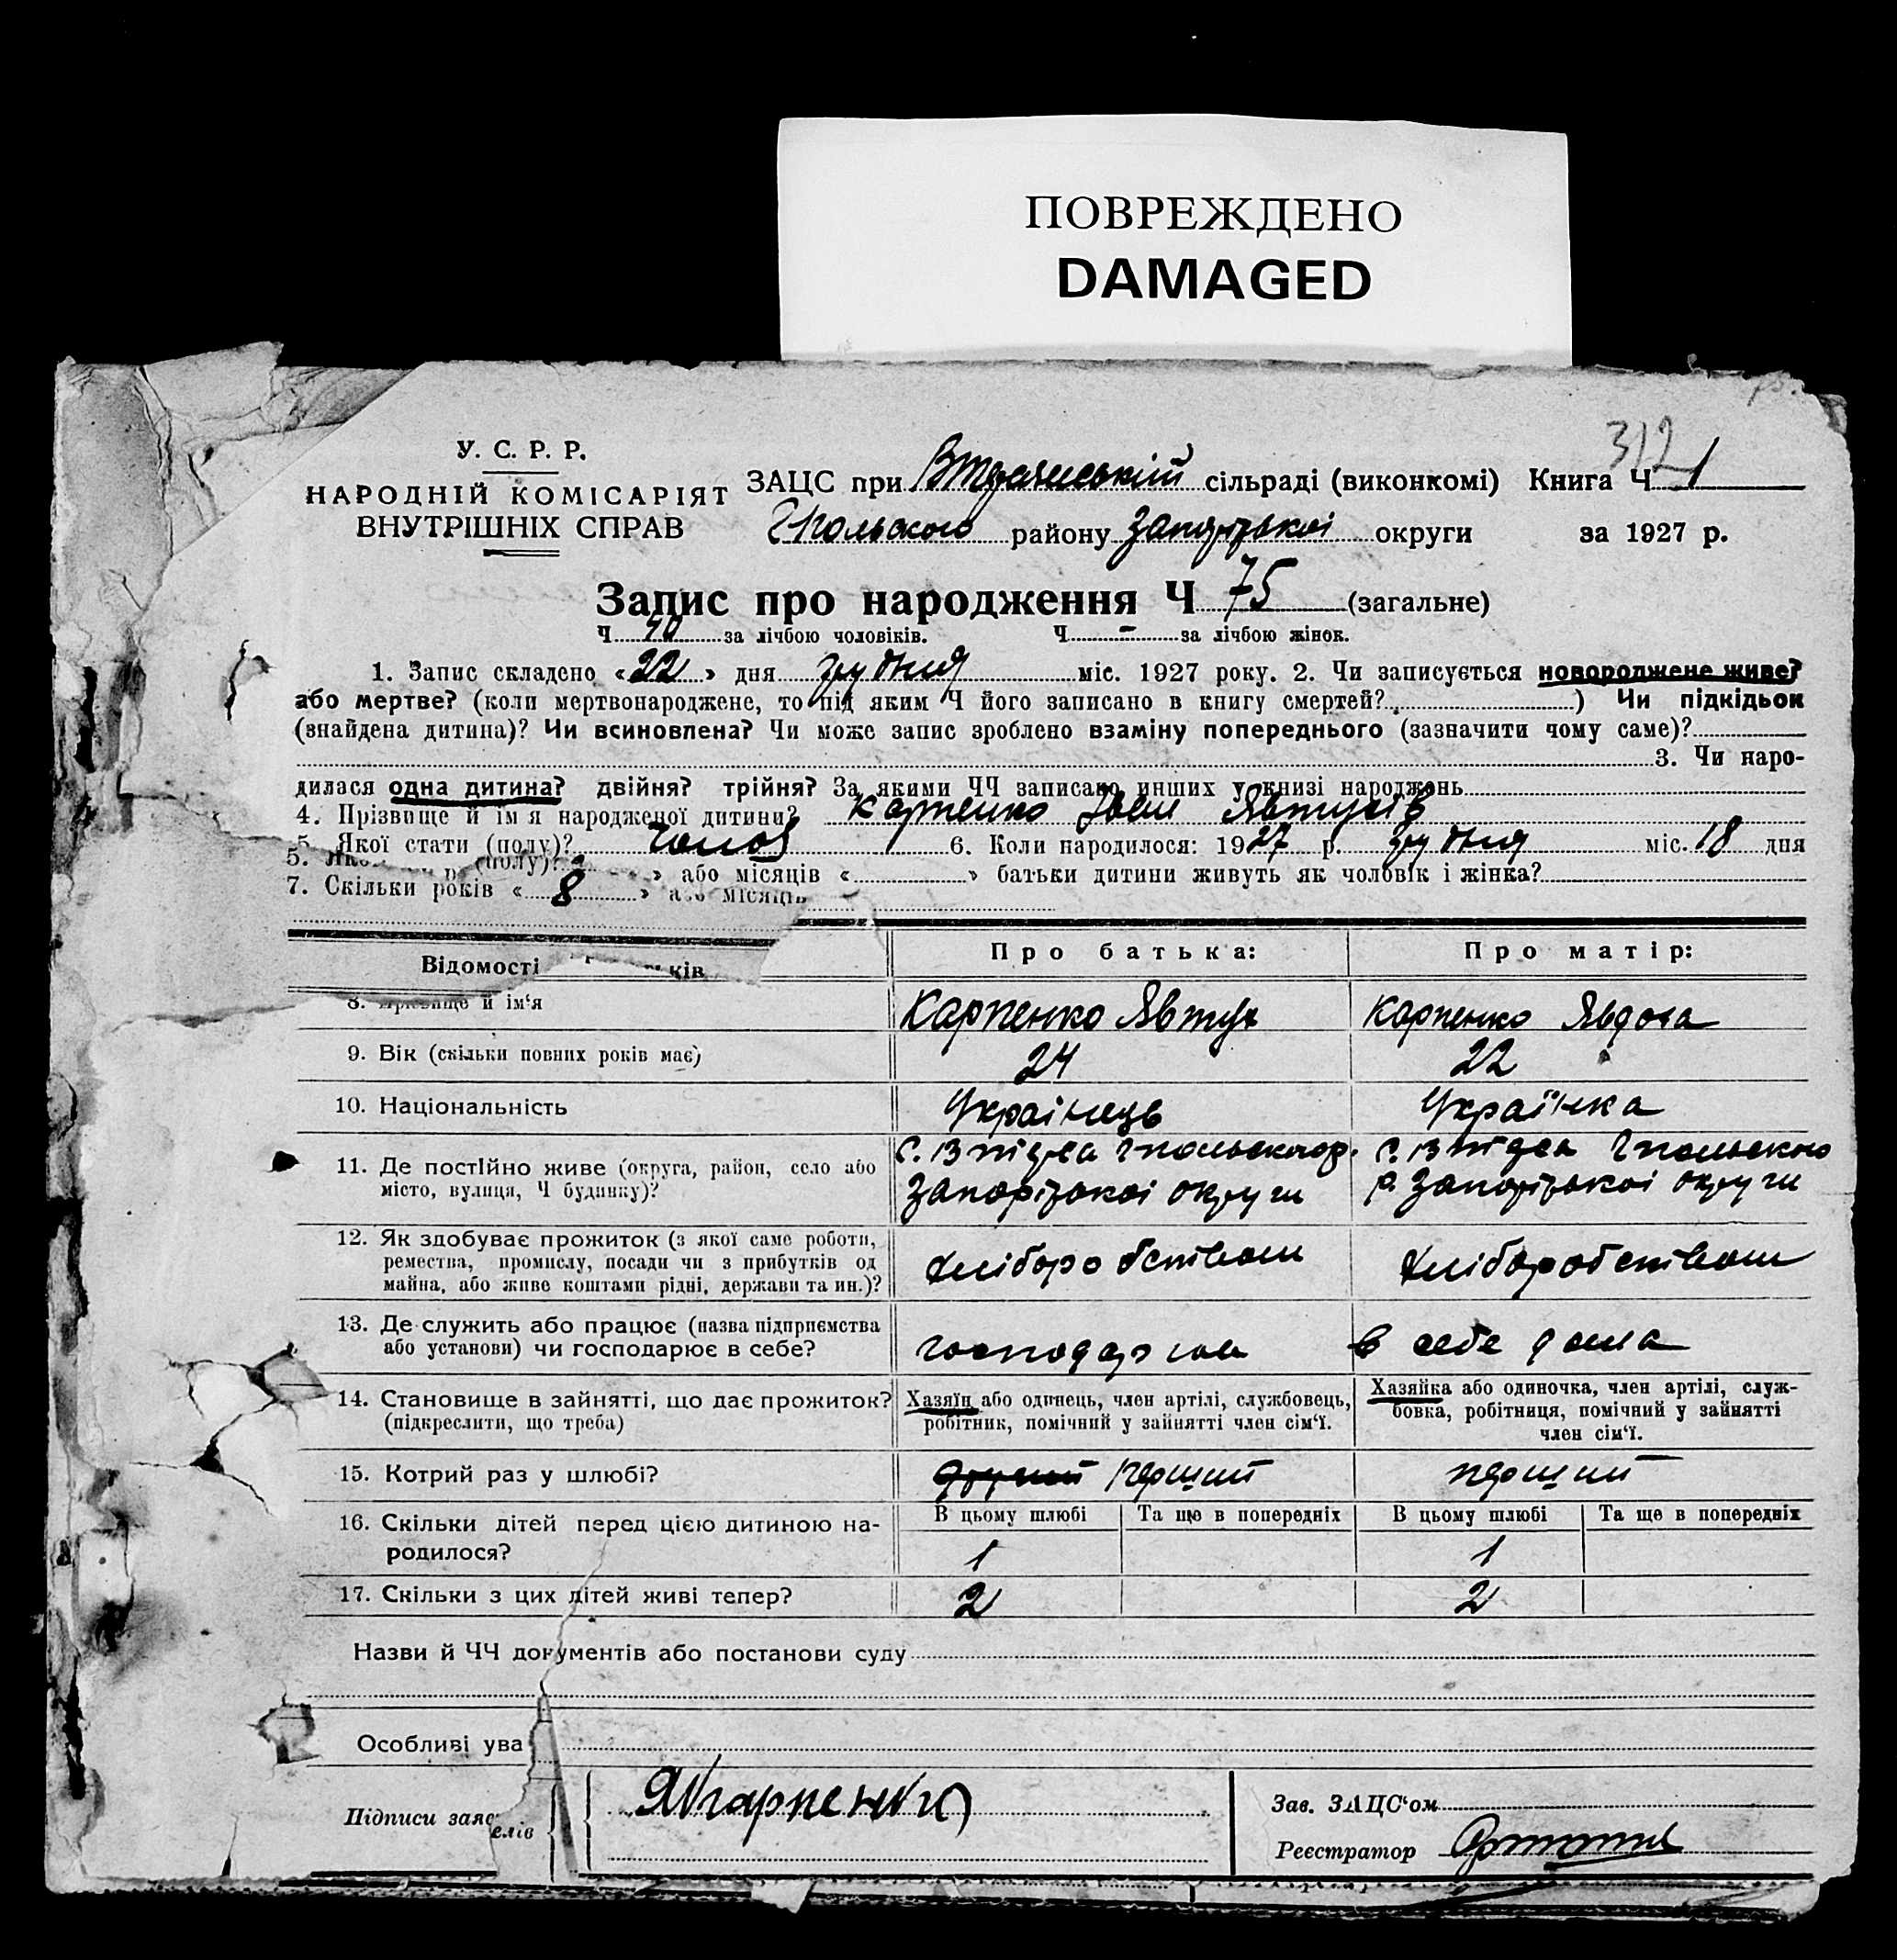 ПОВРЕЖДЕНО
DAMAGED
312
У. С. Р. Р.
НАРОДНІЙ КОМІСАРІЯТ
ВНУТРІШНІХ СПРАВ
ЗАЦС при сільраді (виконкомі) Книга Ч 1
Гпольського району Запорізької округи за 1927 р.
Запис про народження Ч 75 (загальне)
Ч 40 за лічбою чоловіків. Ч - за лічбою жінок.
1. Запис складено «22» дня грудня міс. 1927 року. 2. Чи записується новороджене живе?
або мертве? (коли мертвонароджене, то під яким Ч його записано в книгу смертей? ) Чи підкідьок
(знайдена дитина)? Чи всиновлена? Чи може запис зроблено взаміну попереднього (зазначити чому саме)?
3. Чи наро-
дилася одна дитина? двійня? трійня? За якими ЧЧ записано инших у книзі народжень
4. Прізвище й ім'я народженої дитини? Карпенко Іван Явтухів
5. Якої стати (полу)? чолов 6. Коли народилося: 1927 р. грудня міс. 18 дня
5. (полу)?
» або місяців « » батьки дитини живуть як чоловік і жінка?
7. Скільки років « 8 » або місяців
Відомості ків
Про батька: Про матір:
8. Прізвище й ім'я Карпенко Явтух Карпенко Явдоха
9. Вік (скільки повних років має) 24 22
10. Національність Українець Українка
11. Де постійно живе (округа, район, село або місто, вулиця, Ч будинку)?
с. Втідса Гпольського р. Запорізької округи
с. Втідса Гпольського р. Запорізької округи
12. Як здобуває прожиток (з якої саме роботи,
ремества, промислу, посади чи з прибутків од
майна, або живе коштами рідні, держави та ин.)?
хліборобством хліборобством
13. Де служить або працює (назва підприємства
або установи) чи господарює в себе?
в себе дома
14. Становище в зайнятті, що дає прожиток?
(підкреслити, що треба)
Хазяїн або одинець, член артілі, службовець,
робітник, помічний у зайнятті член сім'ї.
Хазяйка або одиночка, член артілі, служ-
бовка, робітниця, помічний у зайнятті
член сім'ї.
15. Котрий раз у шлюбі? другий перший перший
16. Скільки дітей перед цією дитиною на-
родилося?
В цьому шлюбі Та ще в попередніх В цьому шлюбі Та ще в попередніх
1 1
17. Скільки з цих дітей живі тепер? 2 2
Назви й ЧЧ документів або постанови суду
Особливі ува
Підписи заяв елів
ЯКарпенко
Зав. ЗАЦС'ом
Реєстратор